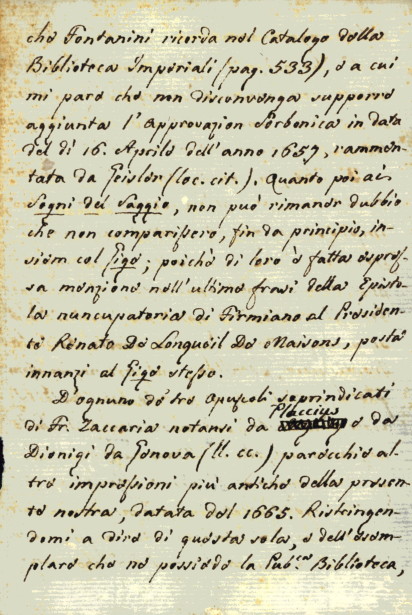 che Fontanini ricorda nel Catalogo della
Biblioteca Imperiali (pag. 533), e a cui
mi pare che non disconvenga supporre
aggiunta l'Approvazion Sorbonica in data
del dì 16. Aprile dell'anno 1657, rammen-
tata da Geisler (loc. cit.). Quanto poi ai
Sogni del Saggio, non può rimaner dubbio
che non comparissero, fin da principio, in-
siem col Gige; poichè di loro è fatta espres-
sa menzione nell'ultime frasi della Episto-
la nuncupatoria di Firmiano al Presiden-
te Renato De Longueil De Maisons, posta
innanzi al Gige stesso.
D'ognuno de' tre opuscoli soprindicati
di Fr. Zaccaria notansi da Placcius e da
Dionigi da Genova (ll. cc.) parecchie al-
tre impressioni più antiche della presen-
te nostra, datata del 1665. Ristringen-
domi a dire di questa sola, e dell'esem-
plare che ne possiede la Pub.ca Biblioteca,